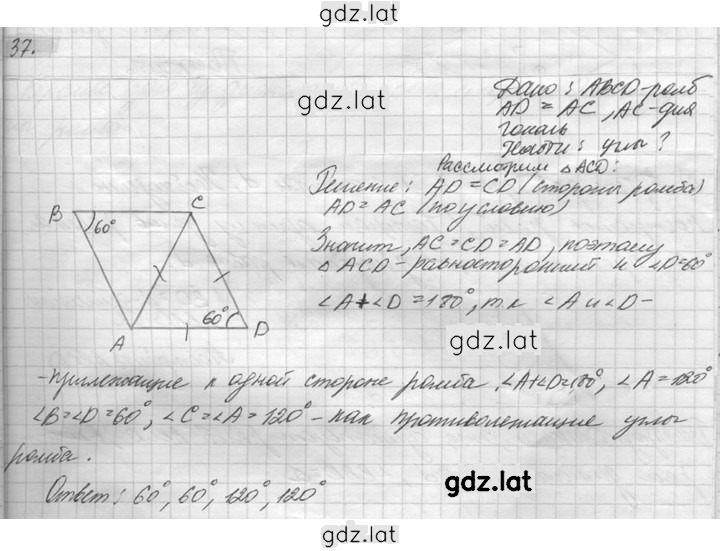 gdz.lat
37.
gdz.lat
Дано: ABCD-ромб
AD = AC, AC-диа
гональ
Найти: углы?
Рассмотрим △ACD:
Решение: AD = CD (стороны ромба)
AD = AC (по условию)
Значит, AC = CD = AD, поэтому
△ACD - равносторонний и ∠D=60°
∠A+∠D = 180°, т.к ∠A и ∠D -
B C
60°
60°
A D
gdz.lat
-прилежащие к одной стороне ромба. ∠A+∠D=180°, ∠A=120°
∠B=∠D=60°, ∠C=∠A=120° - как противолежащие углы
ромба.
Ответ: 60°, 60°, 120°, 120°
gdz.lat
gdz.lat